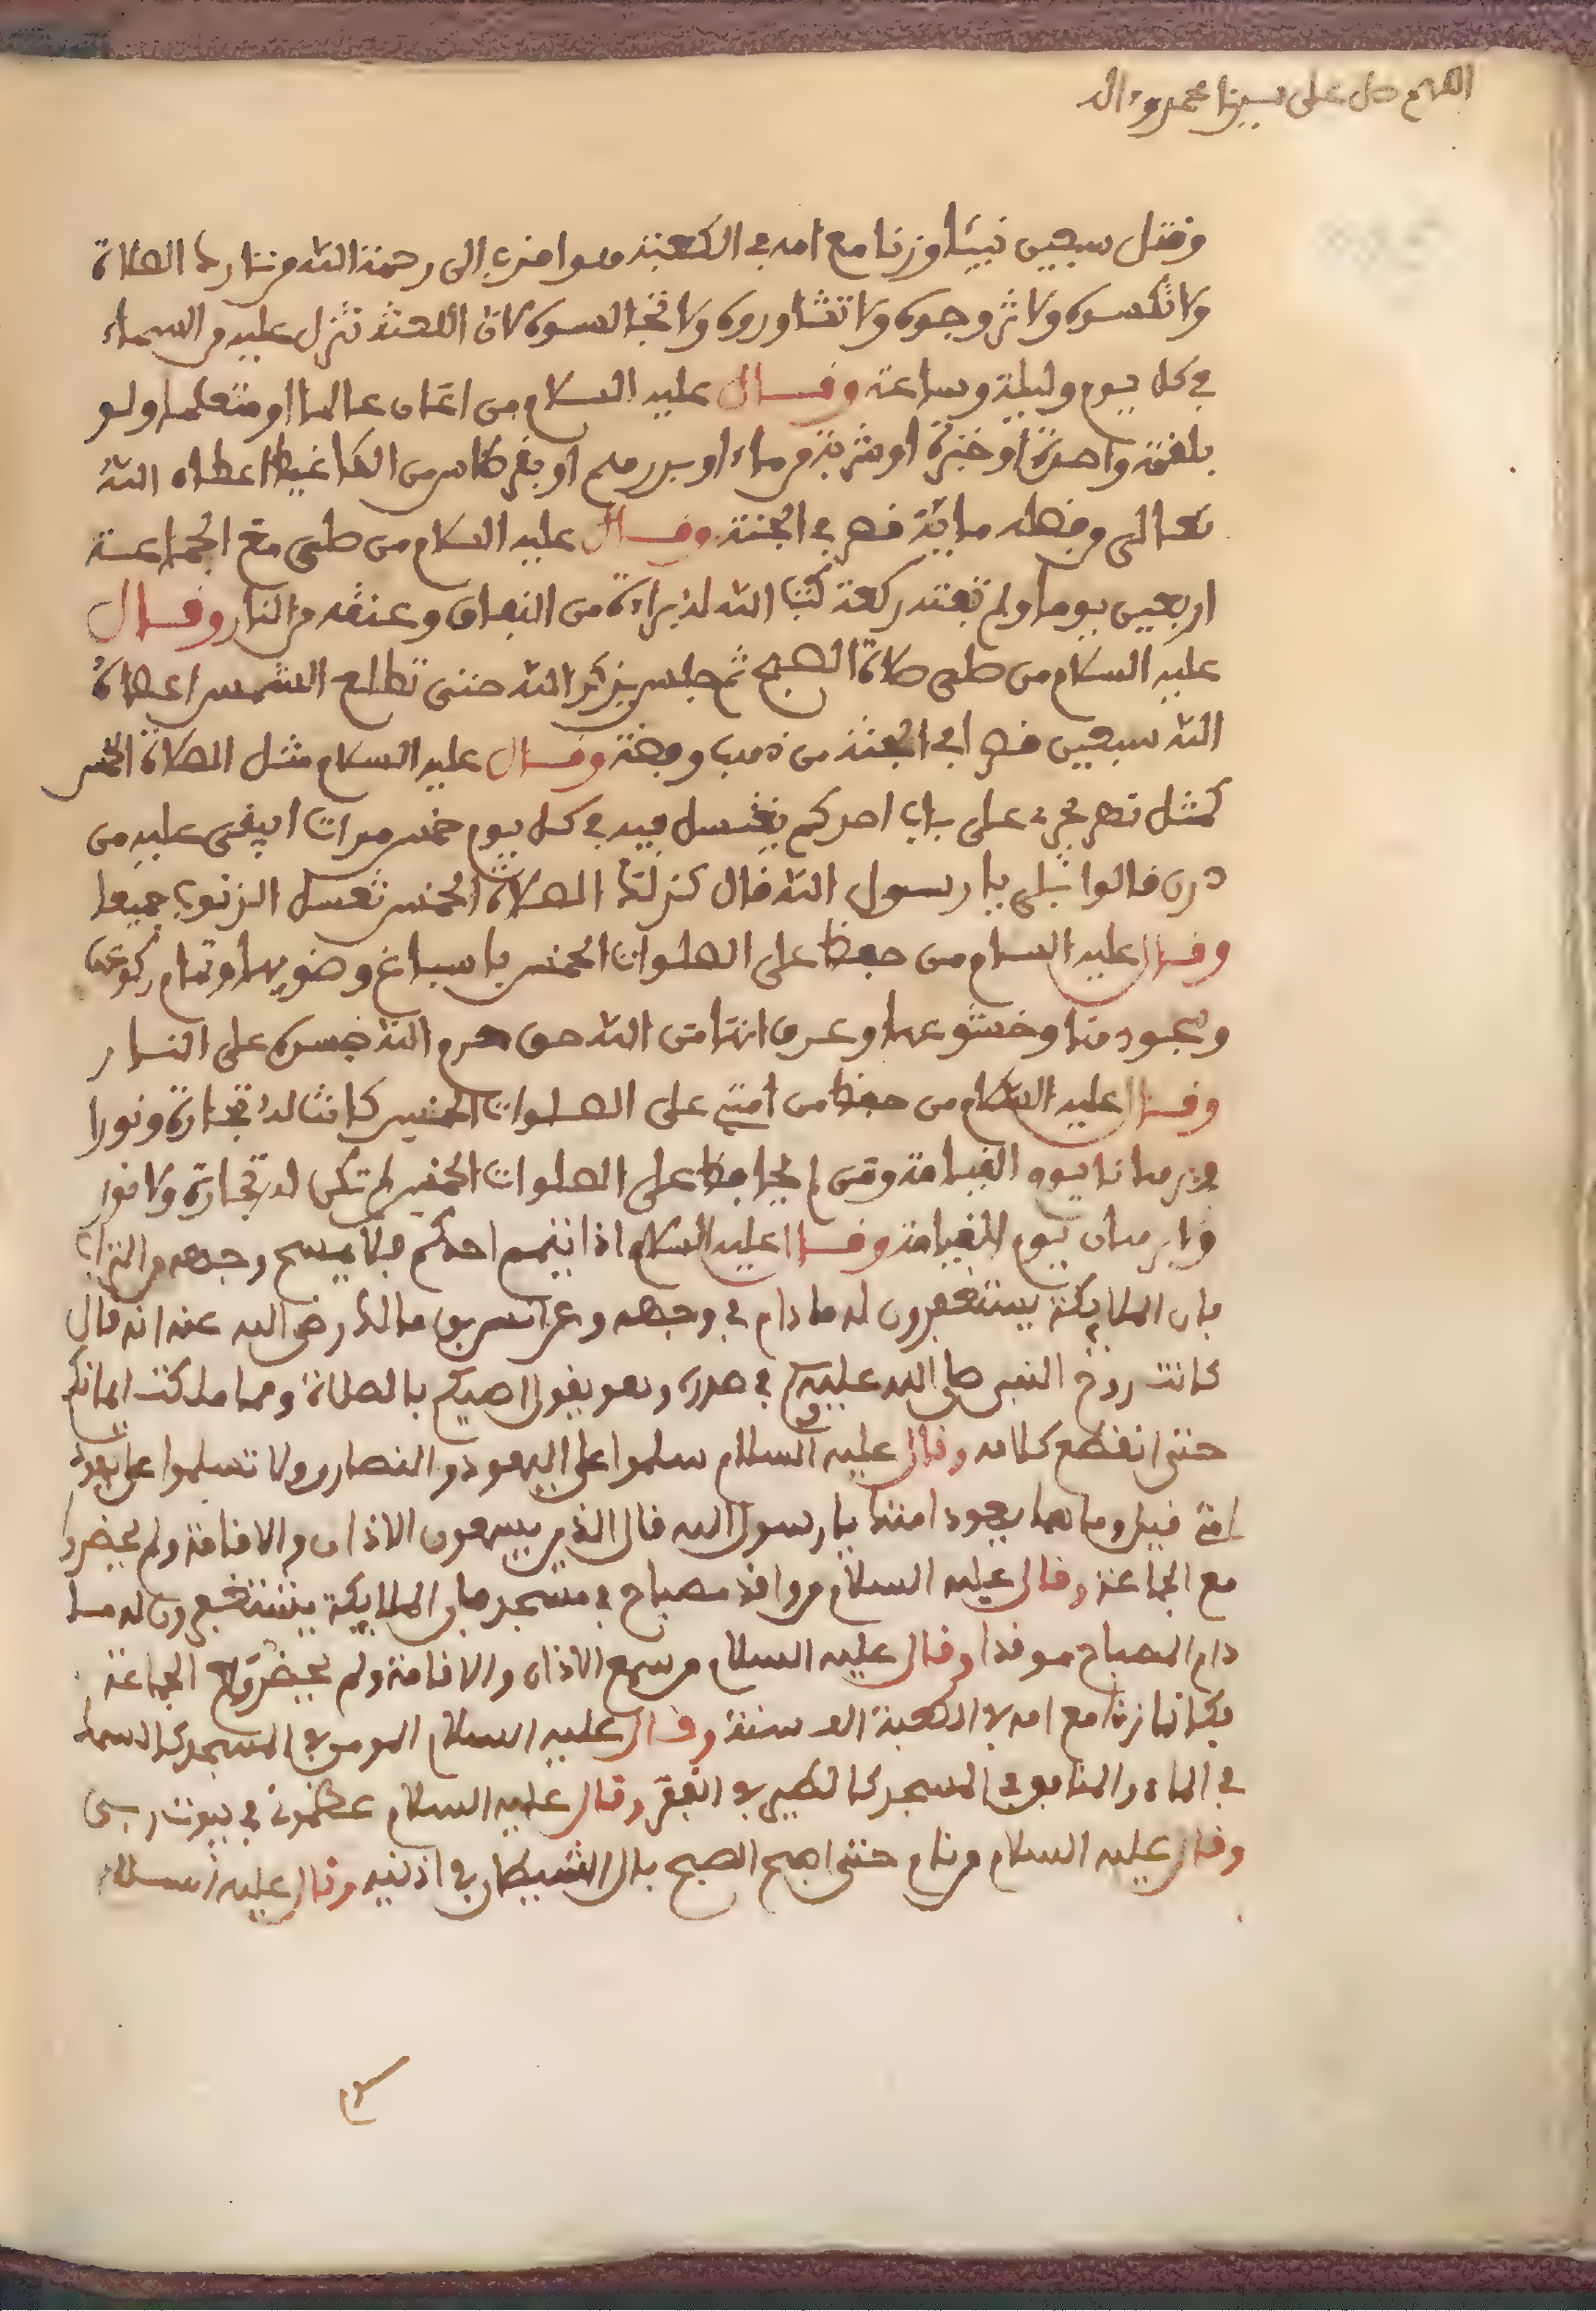 اللهم صل على سيدنا محمد وءال
وقتل سبعين نبيئا وزنا مع امه في الكعبة هوا اقرب الى رحمة الله من تارك الصلاة
ولا تكسوه ولا تزوجوه ولا تشاوروه ولا تجالسوه لان اللعنة تنزل عليه من السماء
في كل يوم وليلة وساعة وقال عليه السلام من اعان عالما او متعلما ولو
بلقمة واحدة او خبزة او شربة من ماء او بدرهم او بقرطاس من الكاغيط اعطاه الله
تعالى وفضله ماية قصر في الجنة وقال عليه السلام من صلى مع الجماعة
اربعين يوما ولم تفته ركعة كتب الله له براءة من النفاق وعتقه من النار وقال
عليه السلام من صلى صلاة الصبح ثم جلس يذكر الله حتى تطلع الشمس اعطاه
الله سبعين قصرا في الجنة من ذهب وفضة وقال عليه السلام مثل الصلاة الخمس
كمثل نهر يجري على باب احدكم يغتسل فيه في كل يوم خمس مرات ايبقى عليه من
درن قالوا بلى يا رسول الله قال كذلك الصلاة الخمس تغسل الذنوب جميعا
وقال عليه السلام من حفظ على الصلوات الخمس باسباغ وضويها وتمام ركوعها
وسجودها وخشوعها وعرف انها من الله حق حرم الله جسده على النار
وقال عليه السلام من حفظ من امتي على الصلوات الخمس كانت له تجارة ونورا
وبرهانا يوم القيامة ومن لم يحافظ على الصلوات الخمس لم تكن له تجارة ولا نور
ولا برهان يوم القيامة وقال عليه السلام اذا تيمم احدكم فلا يمسح وجهه من التراب
فان الملايكة يستغفرون له ما دام في وجهه وعن انس بن مالك رضي الله عنه انه قال
كانت روح النبي صلى الله عليه وسلم في صدره وهو يقول اوصيكم بالصلاة وما ملكت ايمانكم
حتى انقطع كلامه وقال عليه السلام سلموا على اليهود والنصارى ولا تسلموا على يهود
امتي قيل وما يهود امتك يا رسول الله قال الذين يسمعون الاذان والاقامة ولم يحضروا
مع الجماعة وقال عليه السلام من واقد مصباح في مسجد فان الملايكة يستغفرون له ما
دام المصباح موقدا وقال عليه السلام من سمع الاذان والاقامة ولم يحضر مع الجماعة
فكانما زنا مع امه في الكعبة الف سنة وقال عليه السلام المومن في المسجد كالسمك
في الماء والمنافق في المسجد كالطير في القفز وقال عليه السلام عظموني في بيوت ربي
وقال عليه السلام من نام حتى اصبح الصبح بال الشيطان في اذنيه وقال عليه السلام